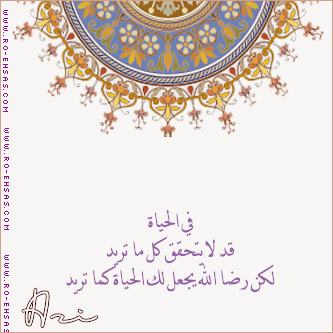 في الحياة
قد لا تتحقق كل ما تريد
لكن رضا الله يجعل لك الحياة كما تريد
WWW.RO-EHSAS.COM
WWW.RO-EHSAS.COM
WWW.RO-EHSAS.COM